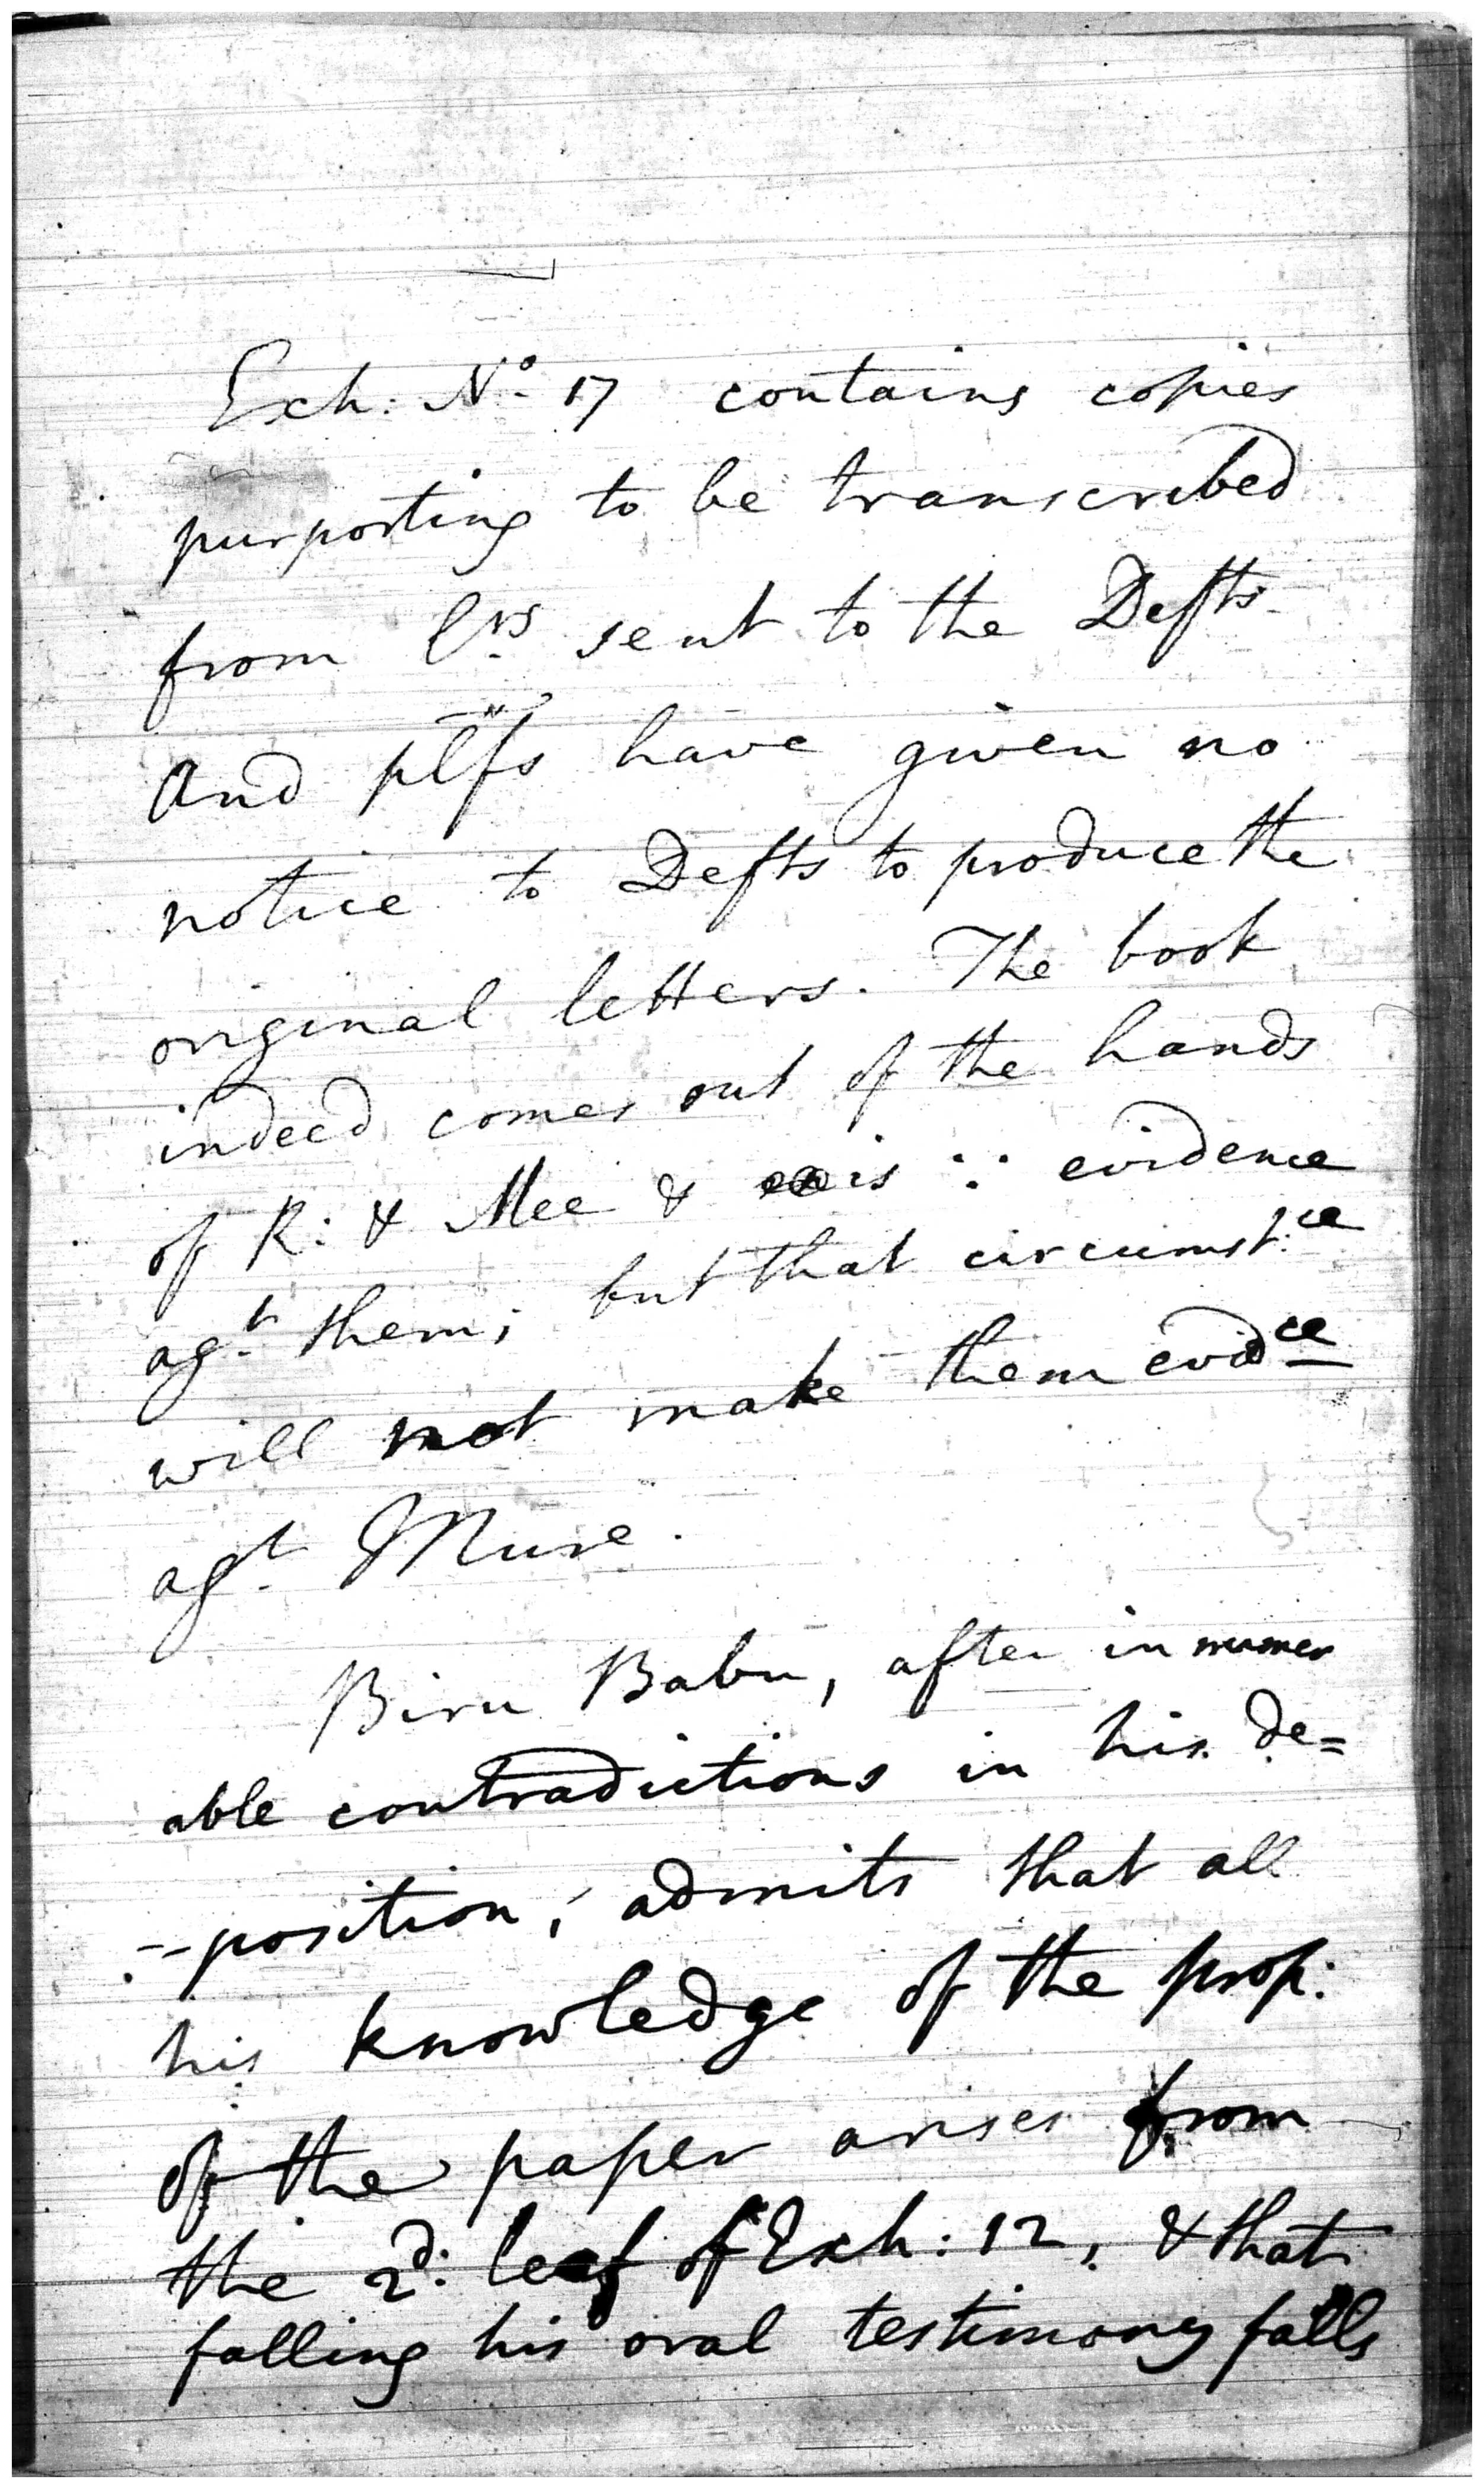 Exh: No. 17 contains copies
purporting to be transcribed
from lrs. sent to the Defts.
And plfs have given no
notice to Defts to produce the
original letters. The book
indeed comes out of the hands
of R: & Mee & is ∵ evidence
agt. them; but that circumst:ce
will not make them evidce
agt. Mure.
Biru Babu, after innumer
able contradictions in his de=
-position, admits that all
his knowledge of the prop:
of the paper arises from
the 2d: leaf of Exh: 12, & that
falling his oral testimony falls